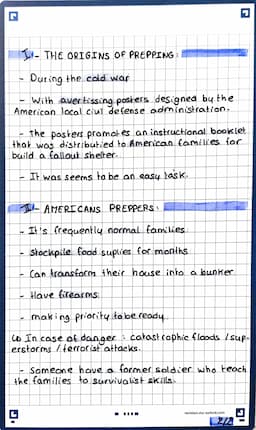 I - THE ORIGINS OF PREPPING :
- During the cold war
- With avertissing posters designed by the
American local civil defense administration.
- The posters promotes an instructional booklet
that was distributied to American families for
build a fallout shelter.
- It was seems to be an easy task.
I - AMERICANS PREPPERS :
- It's frequently normal families
- Stockpile food suplies for months
- Can transform their house into a bunker
- Have firearms
- making priority to be ready
In case of danger : catastrophic floods / sup-
erstorms / terrorist attacks.
- Someone have a former soldier who teach
the families to survivalist skills.
2/2